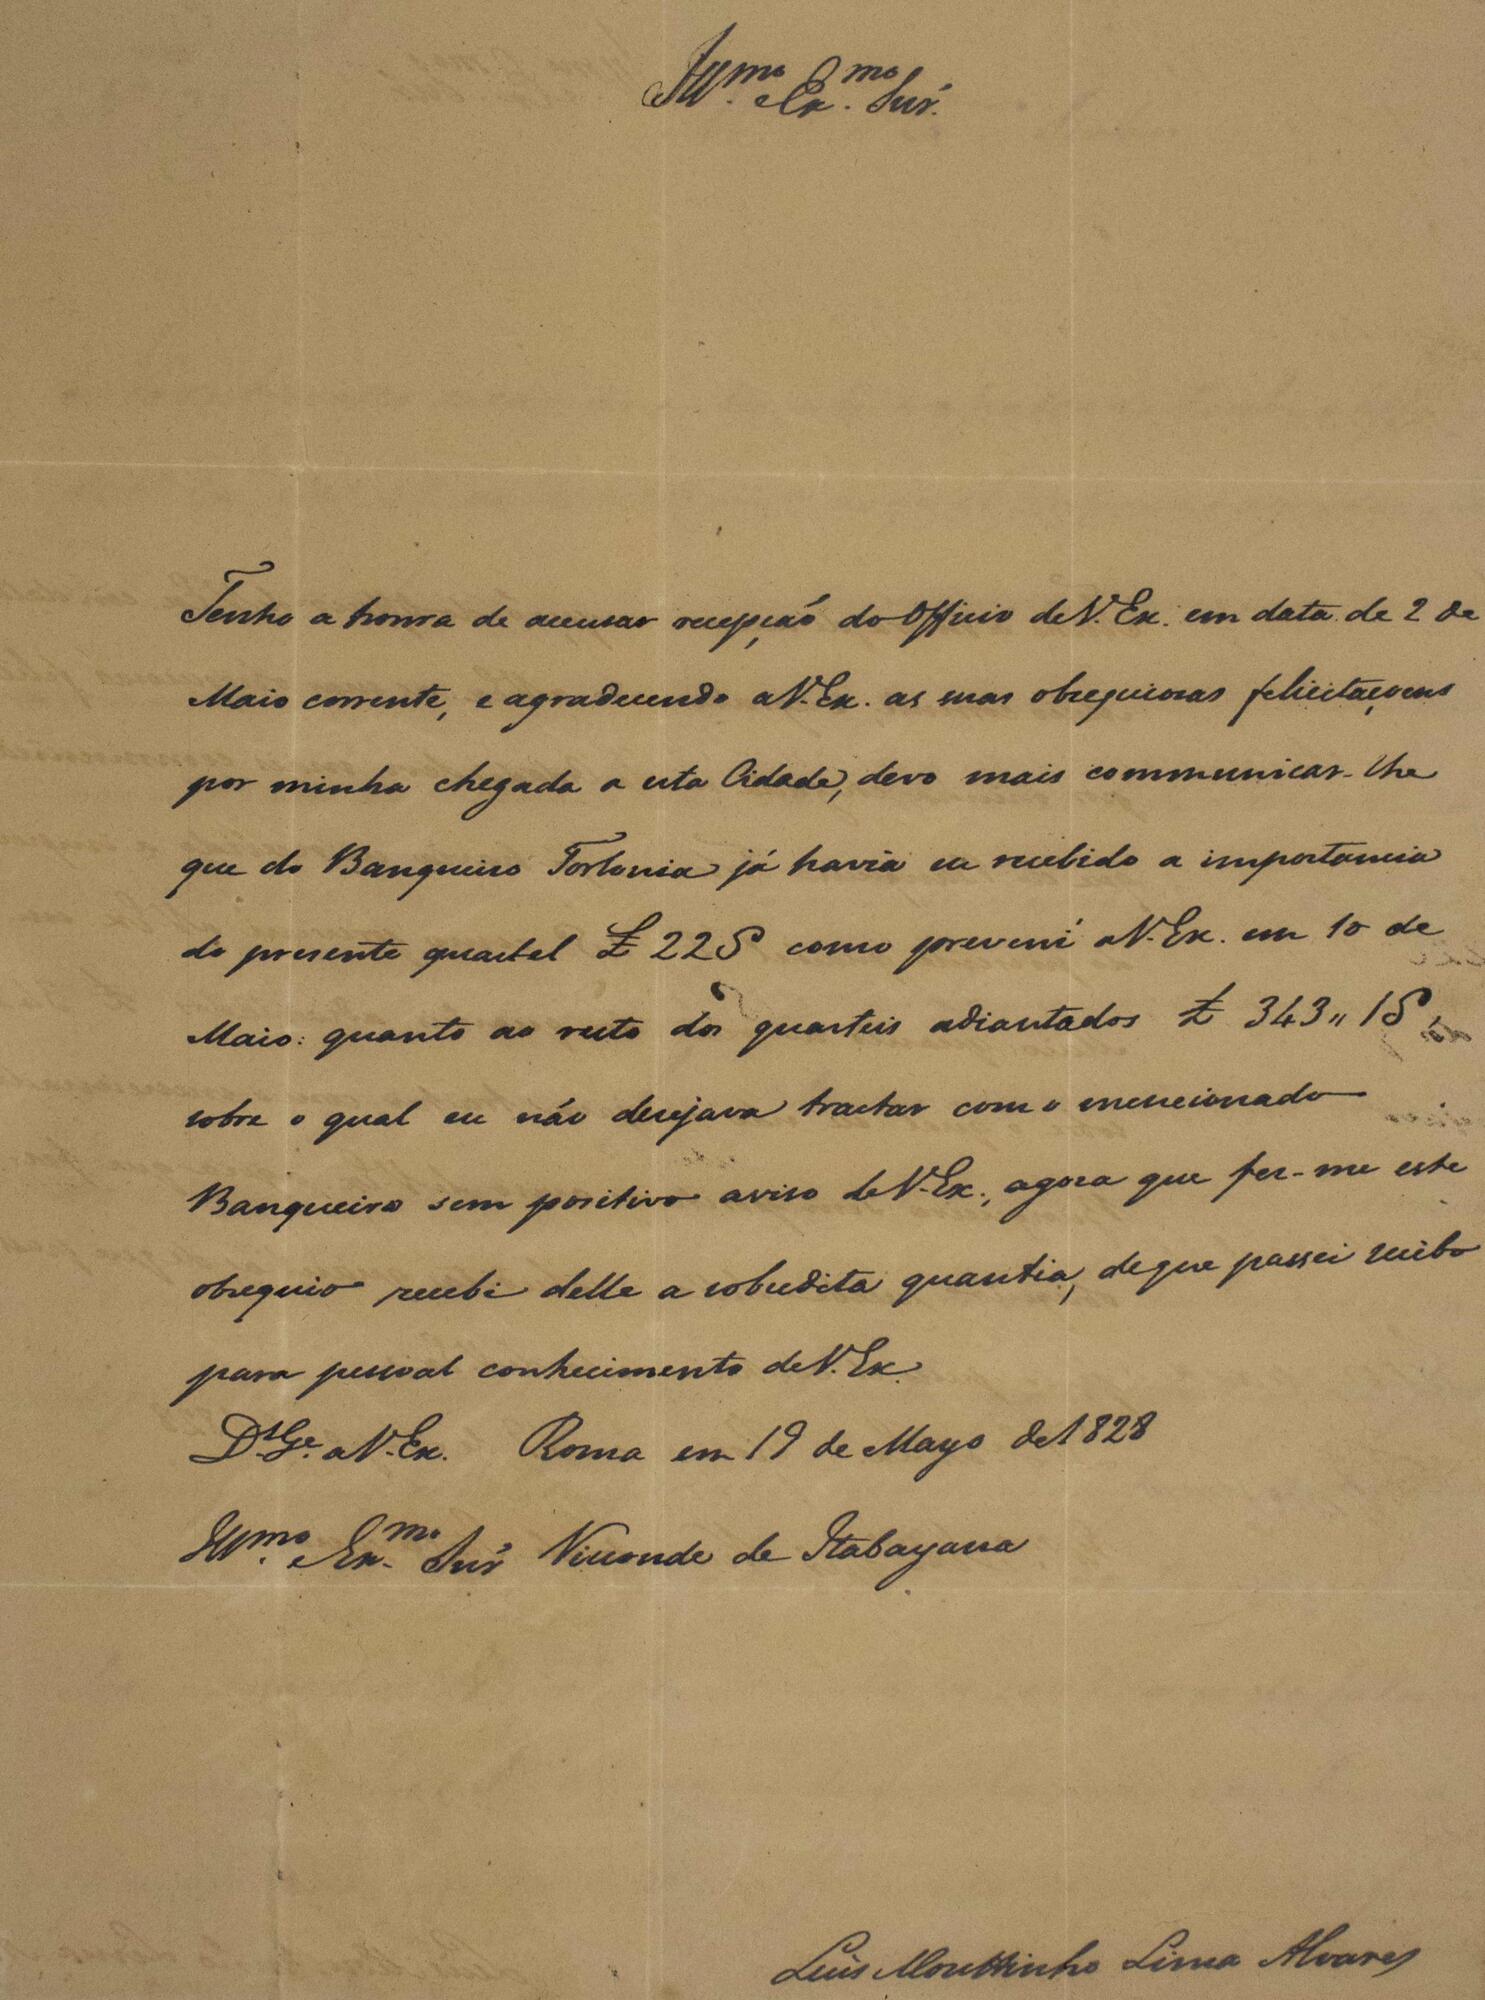 Ill.mo e Ex.mo Snr.
Tenho a honra de accusar recepçaõ do Officio de V. Ex. em data de 2 de
Maio corrente, e agradecendo a V. Ex. as suas obsequiosas felicitaçoens
por minha chegada a esta Cidade, devo mais communicar-lhe
que do Banqueiro Torlonia já havia eu recebido a importancia
do presente quartel £ 225 como preveni a V. Ex. em 10 de
Maio: quanto ao resto dos quarteis adiantados £ 343 ,, 15,
sobre o qual eu não desejava tractar com o mencionado
Banqueiro sem positivo aviso de V. Ex., agora que fez-me este
obsequio recebi delle a sobredita quantia, de que passei recibo
para pessoal conhecimento de V. Ex.
D.s G.e a V. Ex. Roma em 19 de Mayo de 1828
Ill.mo e Ex.mo Snr Visconde de Itabayana
Luis Mouttinho Lima Alvares